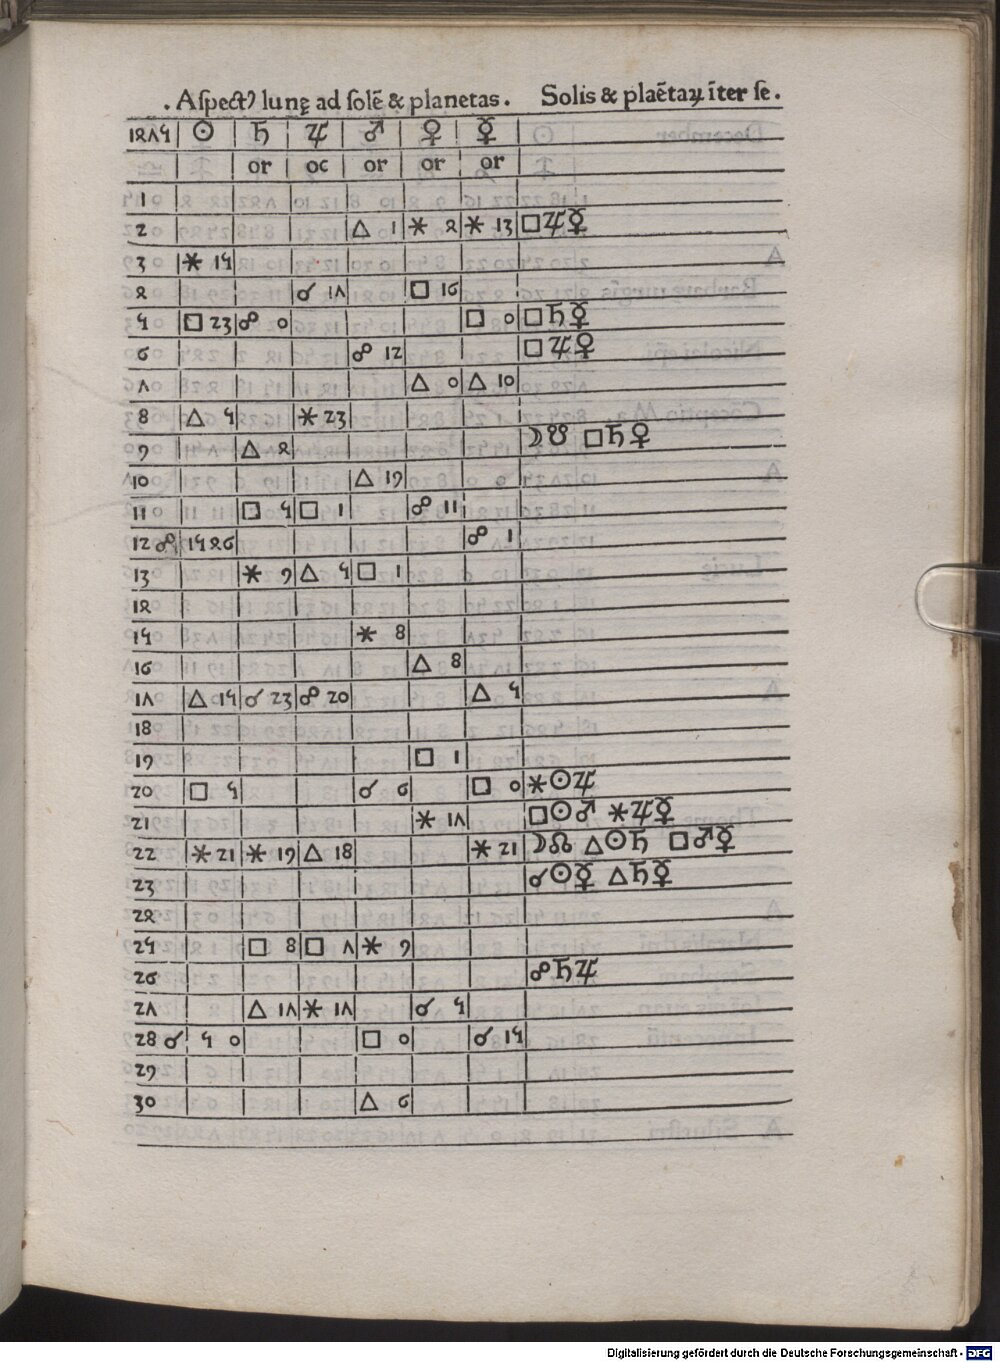 . Aſpectꝰ lunę ad ſolē & planetas . Solis & plaētaꝝ īter ſe .
1475 ☉ ♄ ♃ ♂ ♀ ☿
or oc or or or
1
2 △ 1 ⚹ 4 ⚹ 13 □♃☿
3 ⚹ 15
4 ☌ 17 □ 16
5 □ 23 ☍ 0 □ 0 □♄☿
6 ☍ 12 □♃♀
7 △ 0 △ 10
8 △ 5 ⚹ 23
9 △ 4 ☽☋ □♄♀
10 △ 19
11 □ 5 □ 1 ☍ 11
12 ☍ 15 46 ☍ 1
13 ⚹ 9 △ 5 □ 1
14
15 ⚹ 8
16 △ 8
17 △ 15 ☌ 23 ☍ 20 △ 5
18
19 □ 1
20 □ 5 ☌ 6 □ 0 ⚹☉♃
21 ⚹ 17 □☉♂ ⚹♃☿
22 ⚹ 21 ⚹ 19 △ 18 ⚹ 21 ☽☊ △☉♄ □♂☿
23 ☌☉☿ △♄☿
24
25 □ 8 □ 7 ⚹ 9
26 ☍♄♃
27 △ 17 ⚹ 17 ☌ 5
28 ☌ 5 0 □ 0 ☌ 15
29
30 △ 6
Digitalisierung gefördert durch die Deutsche Forschungsgemeinschaft - DFG